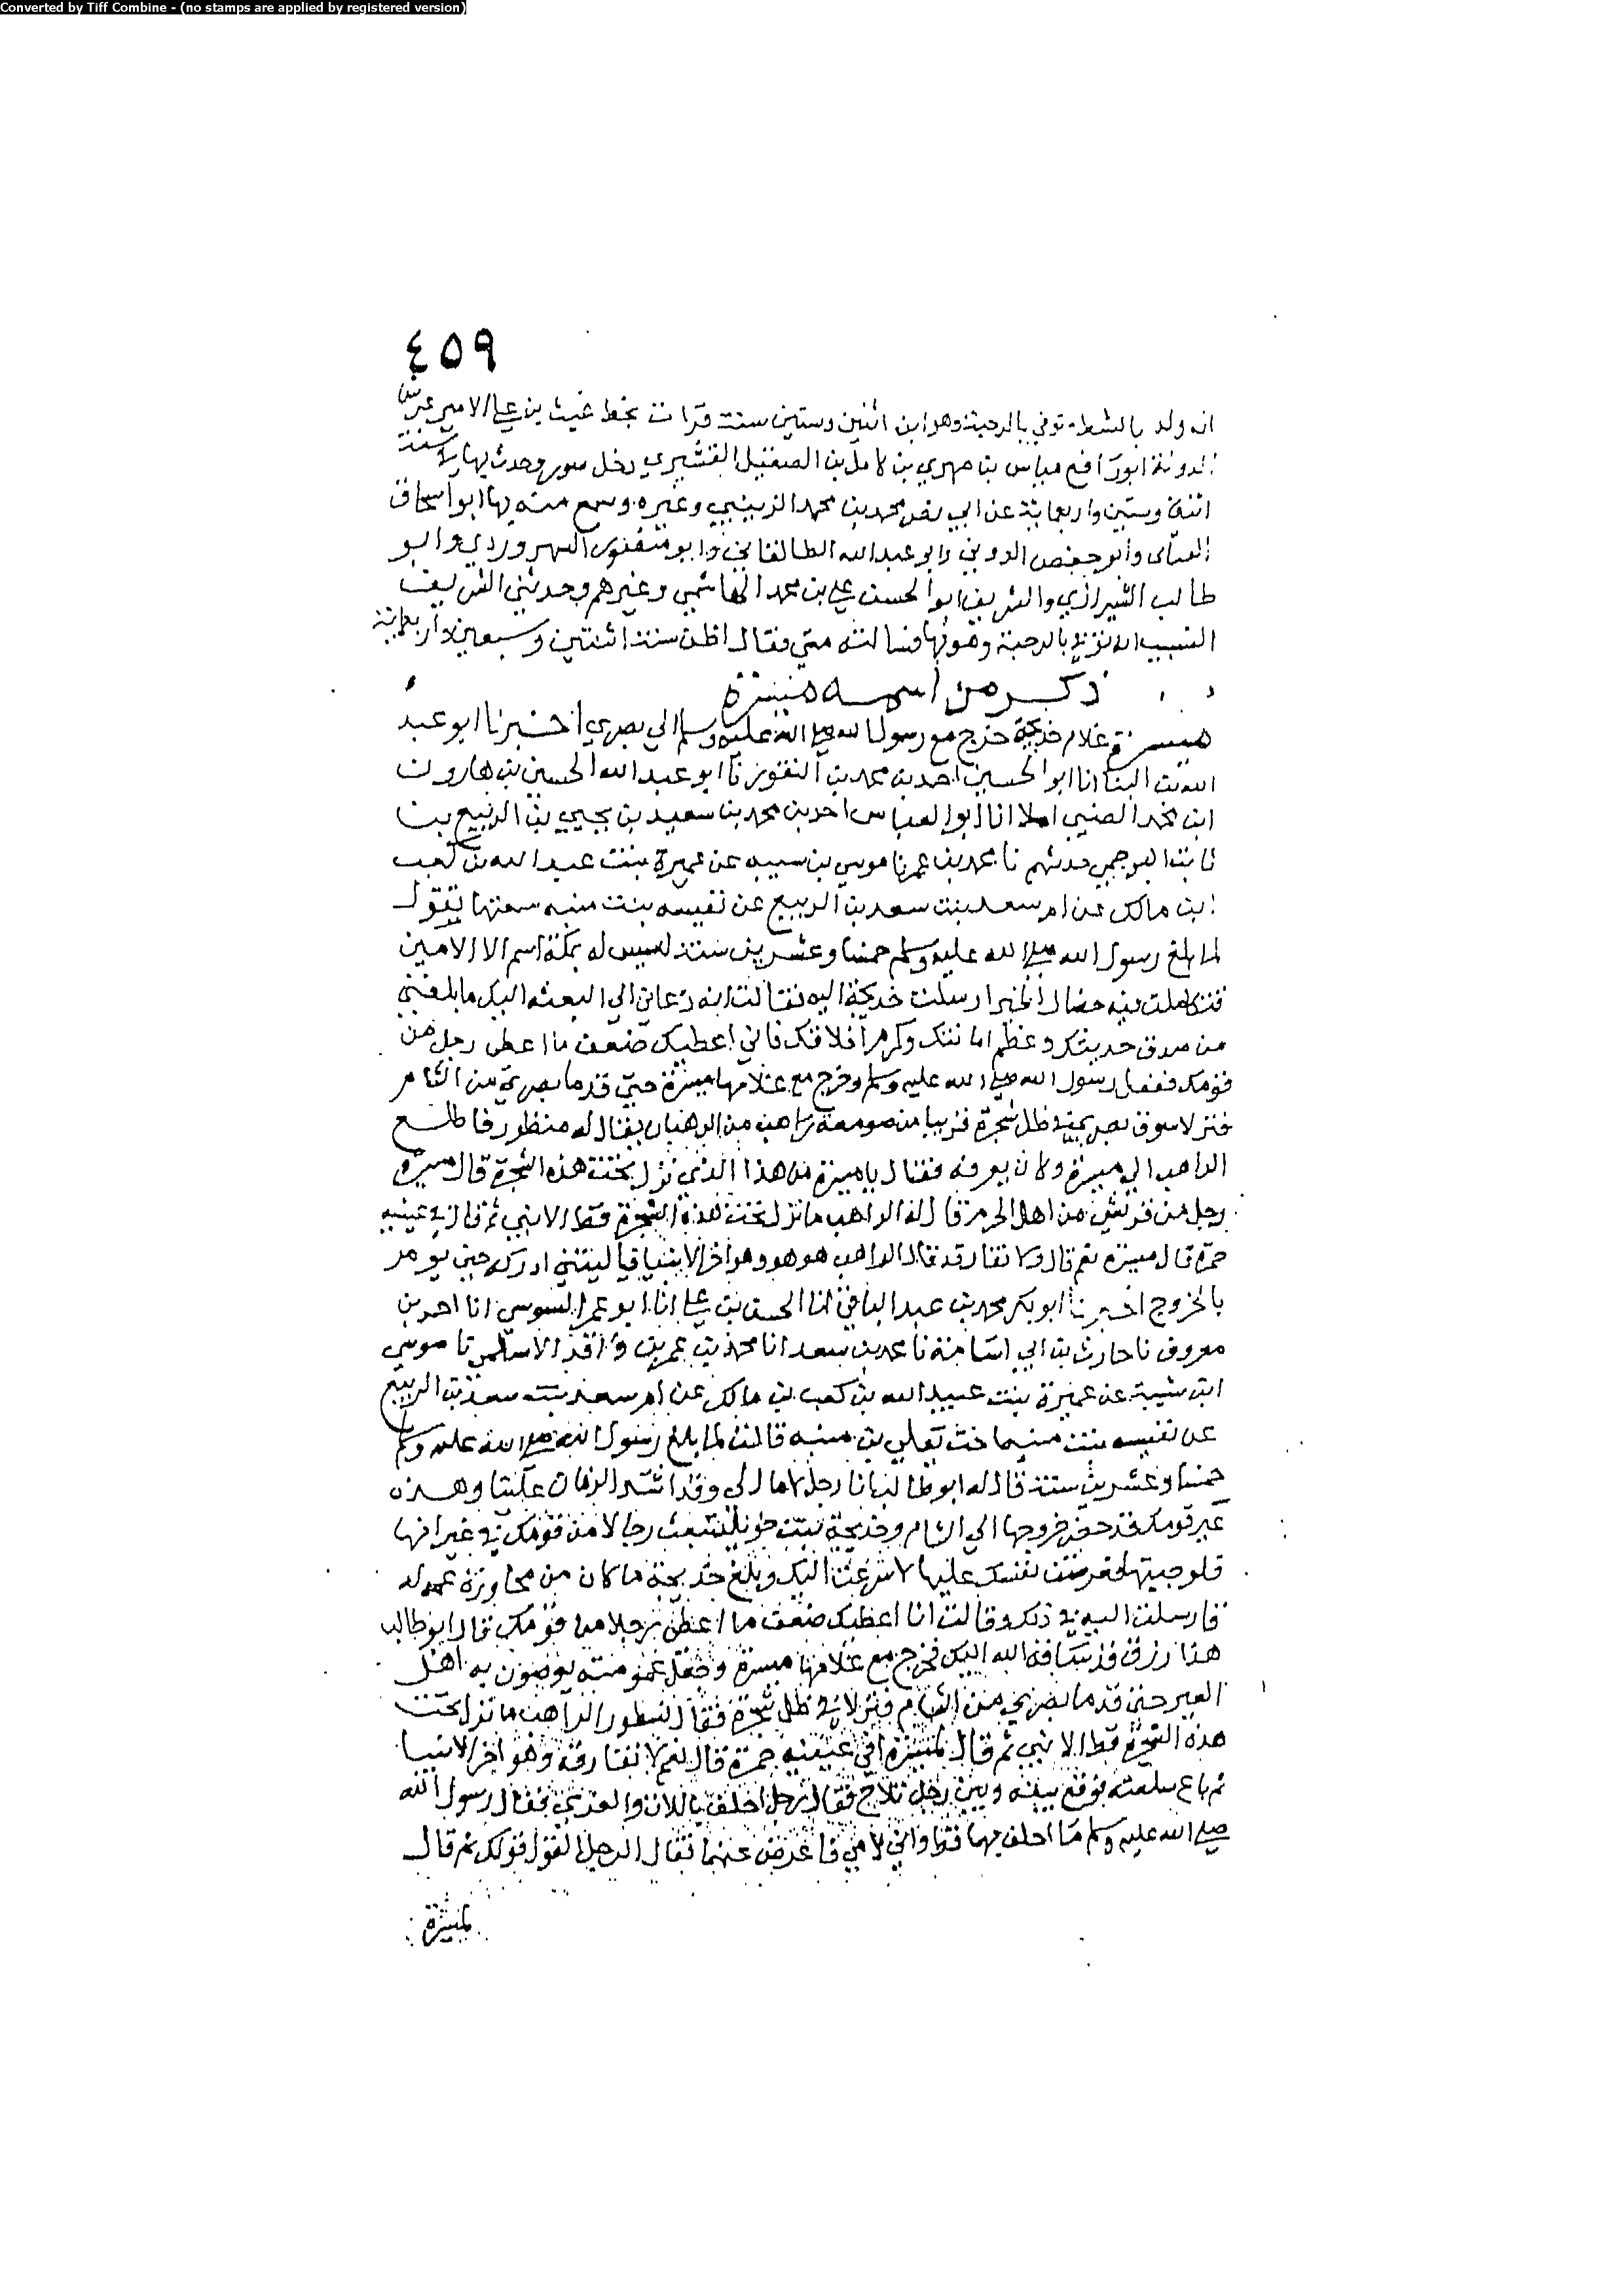 Converted by Tiff Combine - (no stamps are applied by registered version)
٤٥٩
انه ولد بالشط توفي بالرحبة وهو ابن اثنين وستين سنة قرات بخط غيث بن علي الامير عز
الدولة ابو رافع مياس بن مهري بن كامل بن الصقيل القشيري دخل صور وحدث بها سنة
اثنين وستين واربعماية عن ابي نصر محمد بن محمد الزينبي وغيره وسمع منه بها ابو اسحاق
وابو حفص الدوني وابو عبد الله الطالقاني وابو منصور السهروردي وابو
طالب الشيرازي والشريف ابو الحسن علي بن محمد الهاشمي وغيرهم وحدثني الشريف
النسيب انه نزل بالرحبة وهو بها فسالته متى فقال اظن سنة اثنتين وسبعين واربعماية
ذكر من اسمه ميسرة
ميسرة غلام خديجة خرج مع رسول الله صلى الله عليه وسلم الي بصري اخبرنا ابو عبد
الله بن البنا انا ابو الحسين احمد بن محمد بن النقور نا ابو عبد الله الحسين بن هارون
ابن محمد الضبي املا انا ابو العباس احمد بن محمد بن سعيد بن يحيي بن الربيع بن
ثابت البرجمي حدثهم نا محمد بن عمر نا موسي بن شيبه عن عميرة بنت عبد الله بن كعب
ابن مالك عن ام سعد بنت سعد بن الربيع عن نفيسه بنت منبه سمعتها تقول
لما بلغ رسول الله صلى الله عليه وسلم خمسا وعشرين سنة ليس له بمكة اسم الا الامين
فتكاملت فيه خصال الخير ارسلت خديجة اليه فقالت انه دعاني الي البعثه اليك ما بلغني
من صدق حديثك وعظم امانتك وكرم اخلاقك فاني اعطيك ضعف ما اعطى رجل من
قومك ففعل رسول الله صلى الله عليه وسلم وخرج مع غلامها ميسرة حتى قدما بصرى من الشام
فنزلا سوق بصرى في ظل شجرة قريبا من صومعة راهب من الرهبان يقال له منظور فاطلع
الراهب الي ميسرة وكان يعرفه فقال يا ميسرة من هذا الذي نزل تحت هذه الشجرة قال ميسرة
رجل من قريش من اهل الحرم قال له الراهب ما نزل تحت هذه الشجرة قط الا نبي ثم قال في عينيه
حمرة قال ميسرة نعم قال ولا تفارقه قال الراهب هو هو وهو اخر الانبيا فيا ليتني ادركه حين يومر
بالخروج اخبرنا ابو بكر محمد بن عبد الباقي انا الحسن بن علي انا ابو عمر السوسي انا احمد بن
معروف نا حارث بن ابي اسامة نا محمد بن سعد انا محمد بن عمر بن واقد الاسلمي نا موسي
ابن شيبة عن عميرة بنت عبيد الله بن كعب بن مالك عن ام سعد بنت سعد بن الربيع
عن نفيسه بنت منيه اخت يعلي بن منبه قالت لما بلغ رسول الله صلى الله عليه وسلم
خمسا وعشرين سنة قال له ابو طالب انا رجل لا مال لي وقد اشتد الزمان علينا وهذه
عير قومك قد حضر خروجها الي الشام وخديجة بنت خويلد تبعث رجالا من قومك في عيرانها
فلو جيتها فعرضت نفسك عليها لاسرعت اليك وبلغ خديجة ما كان من محاورة عمه له
فارسلت اليه في ذلك وقالت انا اعطيك ضعف ما اعطي رجلا من قومك قال ابو طالب
هذا رزق قد ساقه الله اليك فخرج مع غلامها ميسرة وجعل عمومته يوصون به اهل
العير حتى قدما بصرى من الشام فنزلا في ظل شجرة فقال نسطور الراهب ما نزل تحت
هذه الشجرة قط الا نبي ثم قال لميسرة افي عينيه حمرة قال نعم لا تفارقه وهو اخر الانبيا
ثم باع سلعته فوقع بينه وبين رجل تلاح فقال رجل احلف باللات والعزي فقال رسول الله
صلى الله عليه وسلم ما احلف بهما قط واني لامر فاعرض عنهما فقال الرجل القول قولك ثم قال
لميسرة